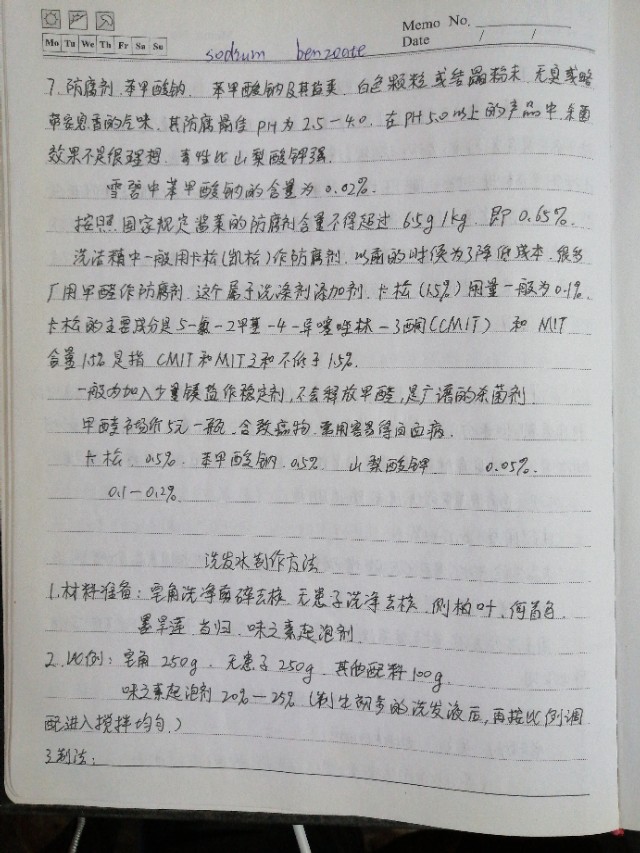 Memo No.
Mo Tu We Th Fr Sa Su
Date / /
sodium benzoate
7. 防腐剂. 苯甲酸钠. 苯甲酸钠及其盐类. 白色颗粒或结晶粉末. 无臭或略
带安息香的气味, 其防腐最佳 pH为 2.5-4.0, 在 pH 5.0 以上的产品中, 杀菌
效果不是很理想. 毒性比山梨酸钾强.
雪碧中苯甲酸钠的含量为 0.02%.
按照国家规定酱菜的防腐剂含量不得超过 6.5g/kg. 即 0.65%.
洗洁精中一般用卡松(凯松)作防腐剂. 以前的时候为了降低成本. 很多
厂用甲醛作防腐剂. 这个属于洗涤剂添加剂. 卡松 (1.5%) 用量一般为 0.1%.
卡松的主要成分是 5-氯-2甲基-4-异噻唑林-3酮(CMIT) 和 MIT
含量1.5% 是指 CMIT和MIT之和不低于 1.5%.
一般为加入少量镁盐作稳定剂, 不会释放甲醛, 是广谱的杀菌剂.
甲醛市场价5元一瓶. 含致癌物. 常用容易得白血病.
卡松. 0.5%. 苯甲酸钠. 0.5% 山梨酸钾 0.05%.
0.1-0.12%
洗发水制作方法
1. 材料准备: 皂角洗净剪碎去核. 无患子洗净去核. 侧柏叶. 何首乌.
墨旱莲 当归. 味之素起泡剂.
2. 比例: 皂角 250g. 无患子 250g. 其他配料 100g.
味之素起泡剂 20%-25% (制生朝多的洗发液后, 再按比例调
配进入搅拌均匀.)
3. 制法: